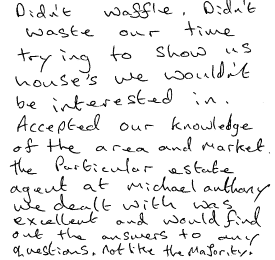 Didn't waffle. Didn't
waste our time
trying to show us
house's we wouldn't
be interested in.
Accepted our knowledge
of the area and market.
the Particular estate
agent at michael anthony
we dealt with was
excellent and would find
out the answers to any
questions. not like the Majority.